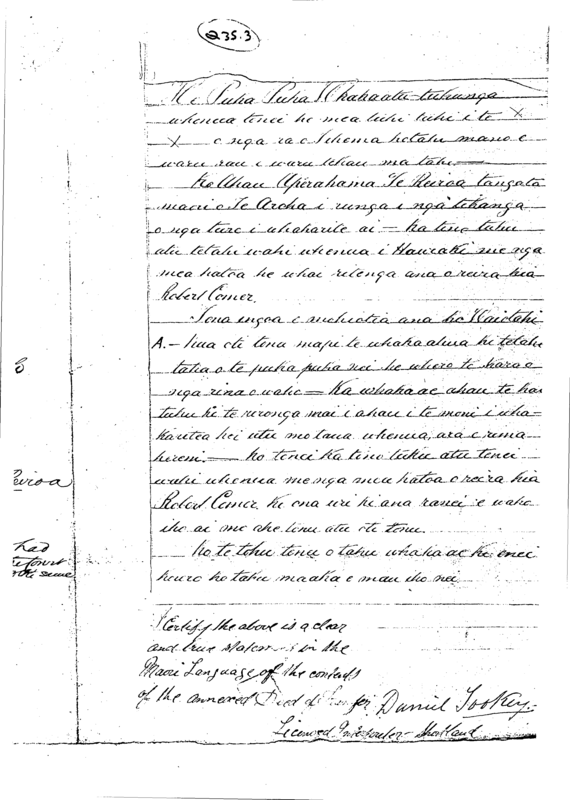 235.3
He Puka Puka Whakaatu tukunga
whenua tenei he mea tuhi tuhi i te X
X o nga ra o Tihema kotahi mano e
waru rau i waru tekau ma tahi.
Ko Ahau Aperahama Te Reiroa tangata
maori o Te Aroha i runga i nga tikanga
o nga ture i whakarite ai - ka tino tuku
atu tetahi wahi whenua i Hauraki me nga
mea katoa he whai ritenga ana o reira kia
Robert Comer.
Tona ingoa e mohiotia ana ko Kaiotahi
A. - kua oti tenu mapi te whakaahua ki tetahi
taha o te puka puka nei he whero te kara o
nga rina o waho = Ka whakaae ahau te kai
tuku ki te rironga mai i ahau i te moni i wha-
kauteа hei utu mo taua whenua, ara e rima
hereni. ko tenei ka tino tuku atu tenei
wahi whenua me nga mea katoa o reira kia
Robert Comer ki ona uri ki ana ranei e waho
iho ai me ake tonu atu oti tonu.
Ko te tohu tenu o taku whakaae ki enei
korero ko taku maaka e mau iho nei
Reiroa
had
the same
I Certify the above is a clear
and true statement in the
Maori Language of the contents
of the annexed Deed of Daniel Tookey.
Licensed Interpreter - Shortland